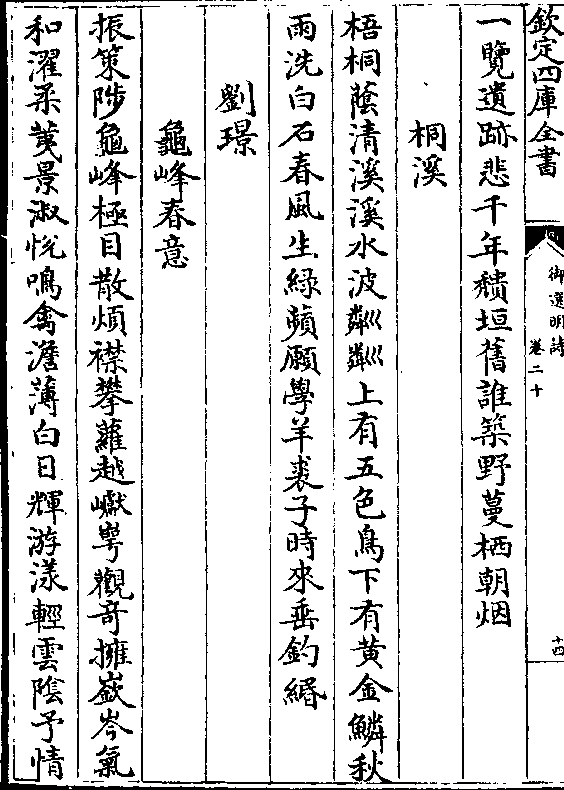 欽定四庫全書
御選明詩
卷二十
十四
一覽遺跡悲千年積垣舊誰築野蔓栖朝烟
桐溪
梧桐蔭清溪溪水波粼粼上有五色鳥下有黄金鱗秋
雨洗白石春風生綠蘋願學羊裘子時來垂釣緡
劉璟
龜峰春意
振策陟龜峰極目散煩襟攀蘿越巘崿觀奇擁嶔岑氣
和濯柔荑景淑悦鳴禽澹薄白日輝游漾輕雲陰予情